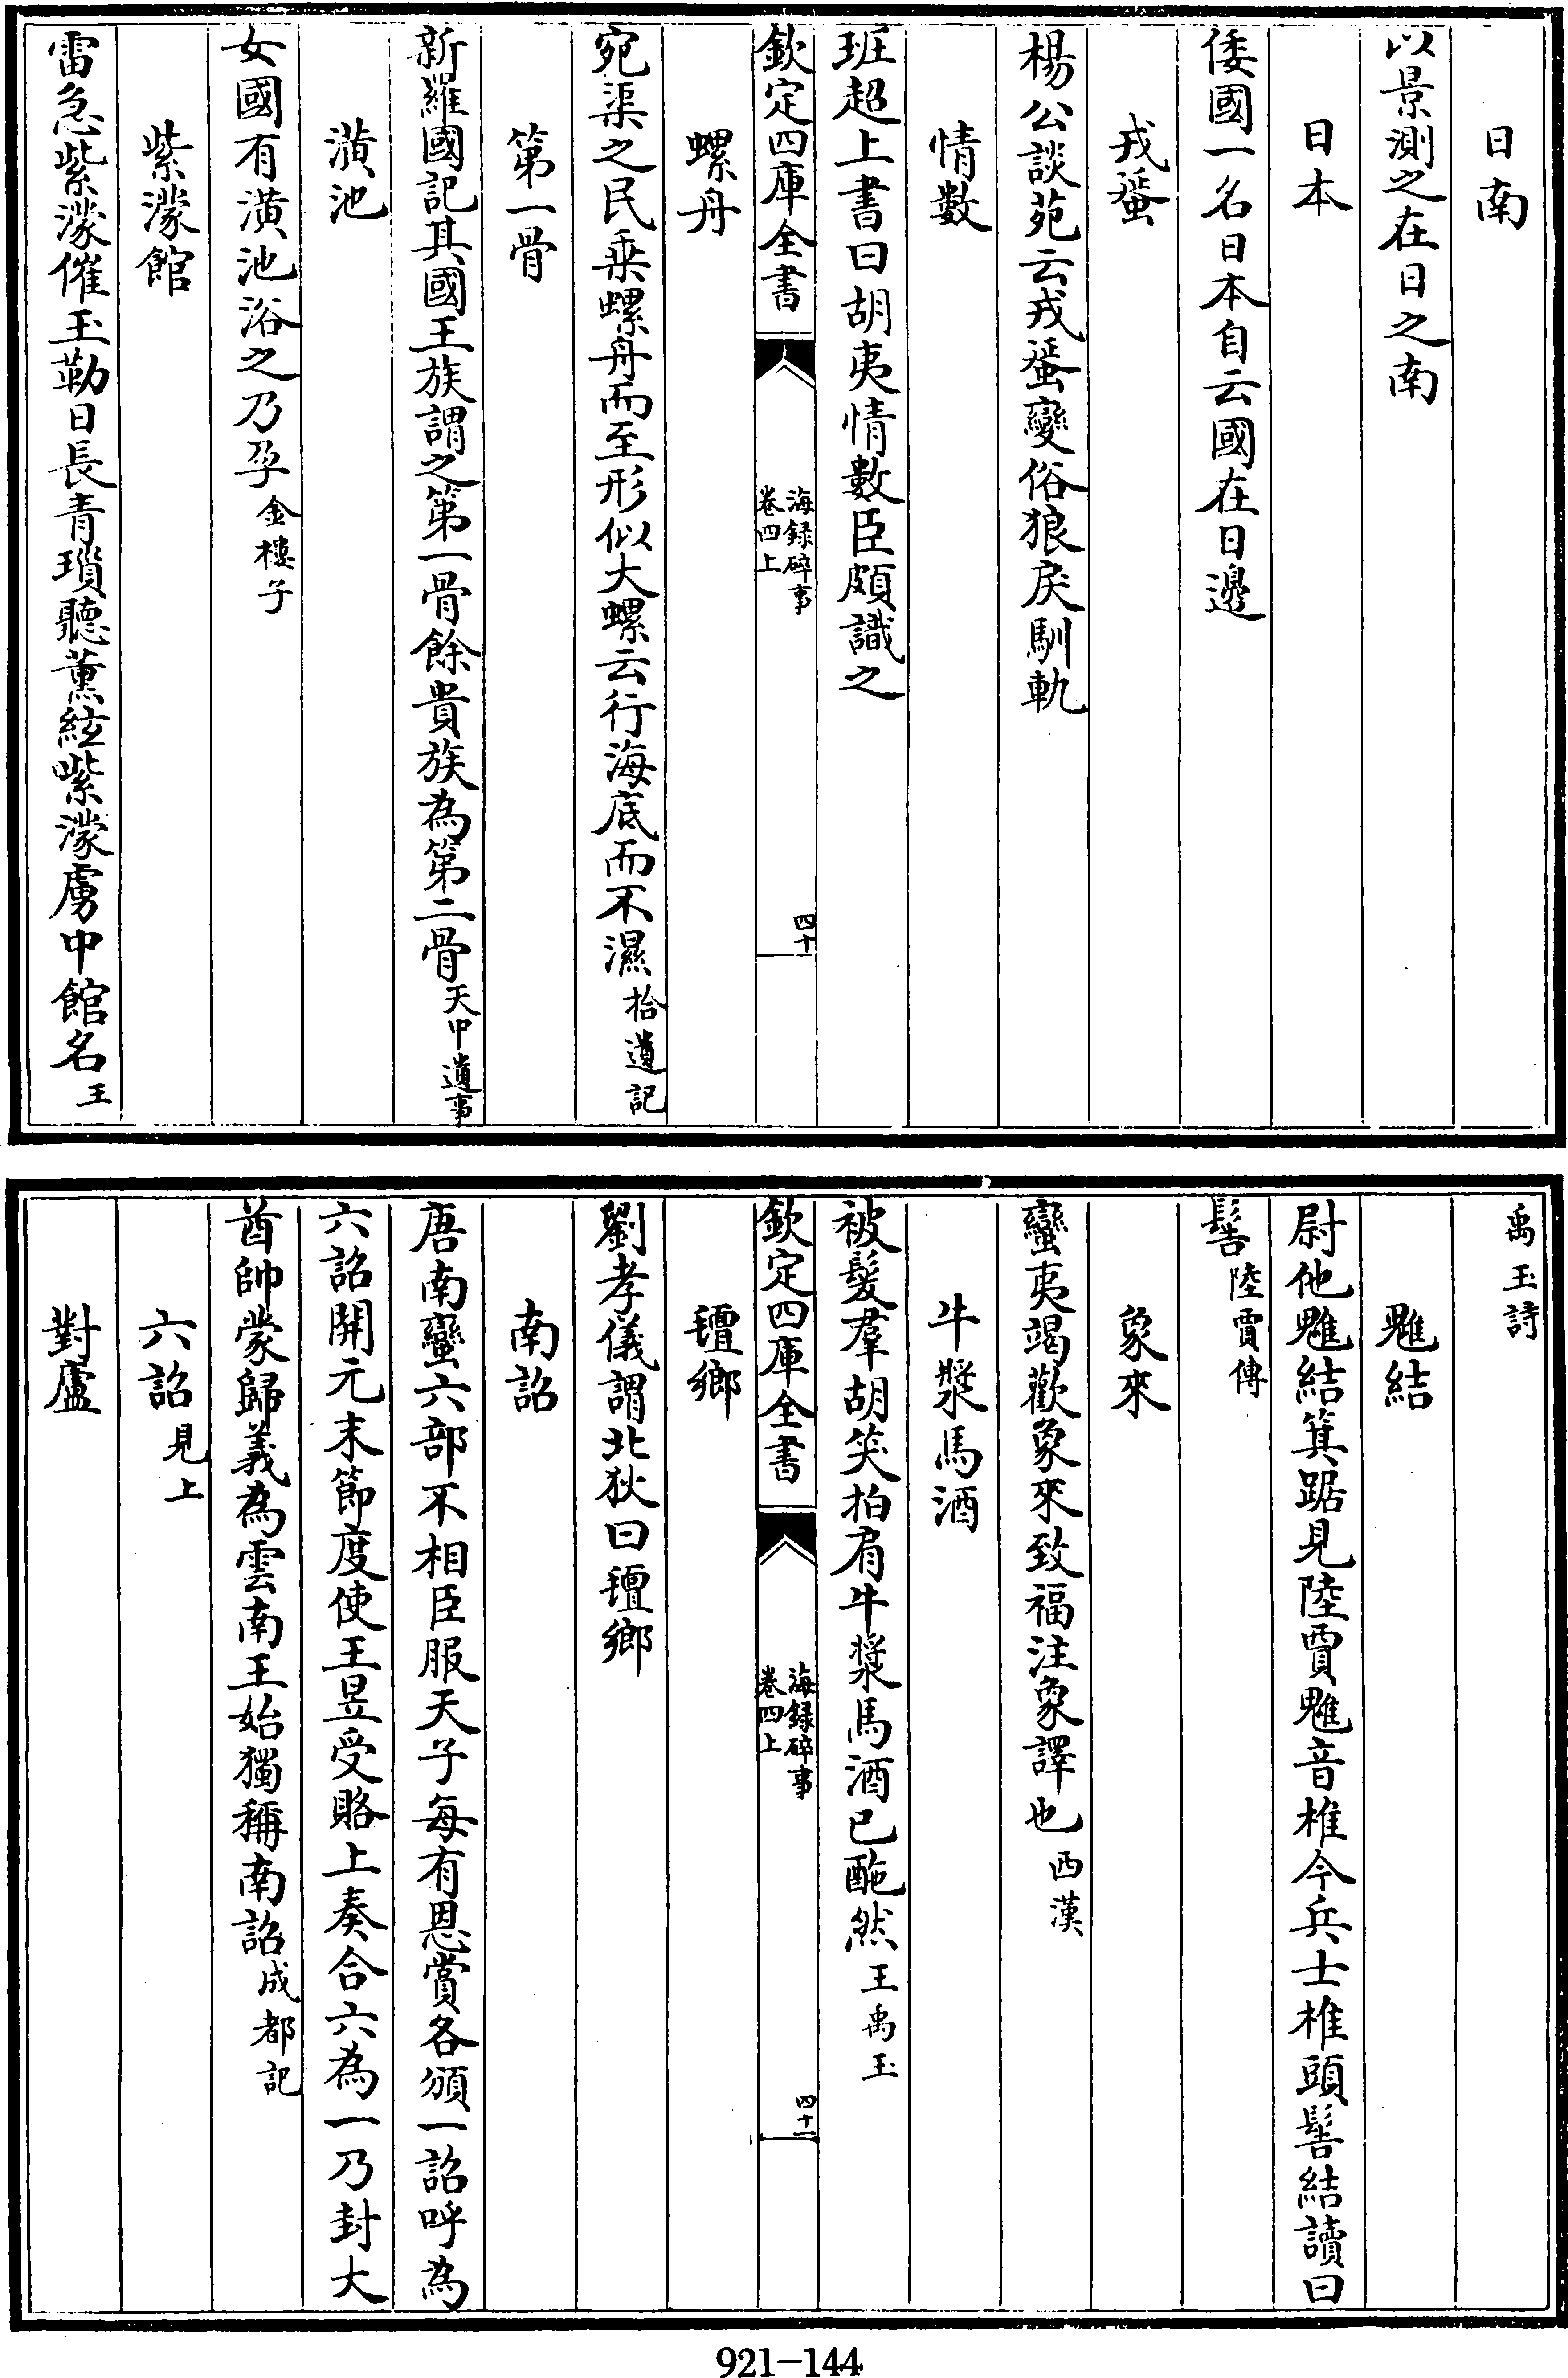 日南
以景測之在日之南
日本
倭國一名日本自云國在日邊
戎蜑
楊公談苑云戎蜑變俗狼戾馴軌
情數
班超上書曰胡夷情數臣頗識之
欽定四庫全書
海録碎事
卷四上
四十
螺舟
宛渠之民乘螺舟而至形似大螺云行海底而不濕拾遺記
第一骨
新羅國記其國王族謂之第一骨餘貴族為第二骨天中遺事
潢池
女國有潢池浴之乃孕金樓子
紫濛館
雷急紫濛催玉勒日長青瑣聽薰絃紫濛虜中館名王
禹玉詩
魋結
尉他魋結箕踞見陸賈魋音椎今兵士椎頭髻結讀曰
髻陸賈傳
象來
蠻夷竭歡象來致福注象譯也西漢
牛漿馬酒
被髮羣胡笑拍肩牛漿馬酒已酏然王禹玉
欽定四庫全書
海録碎事
卷四上
四十一
氊鄉
劉孝儀謂北狄曰氊鄉
南詔
唐南蠻六部不相臣服天子每有恩賞各頒一詔呼為
六詔開元末節度使王昱受賂上奏合六為一乃封大
酋帥蒙歸義為雲南王始獨稱南詔成都記
六詔見上
對盧
921-144